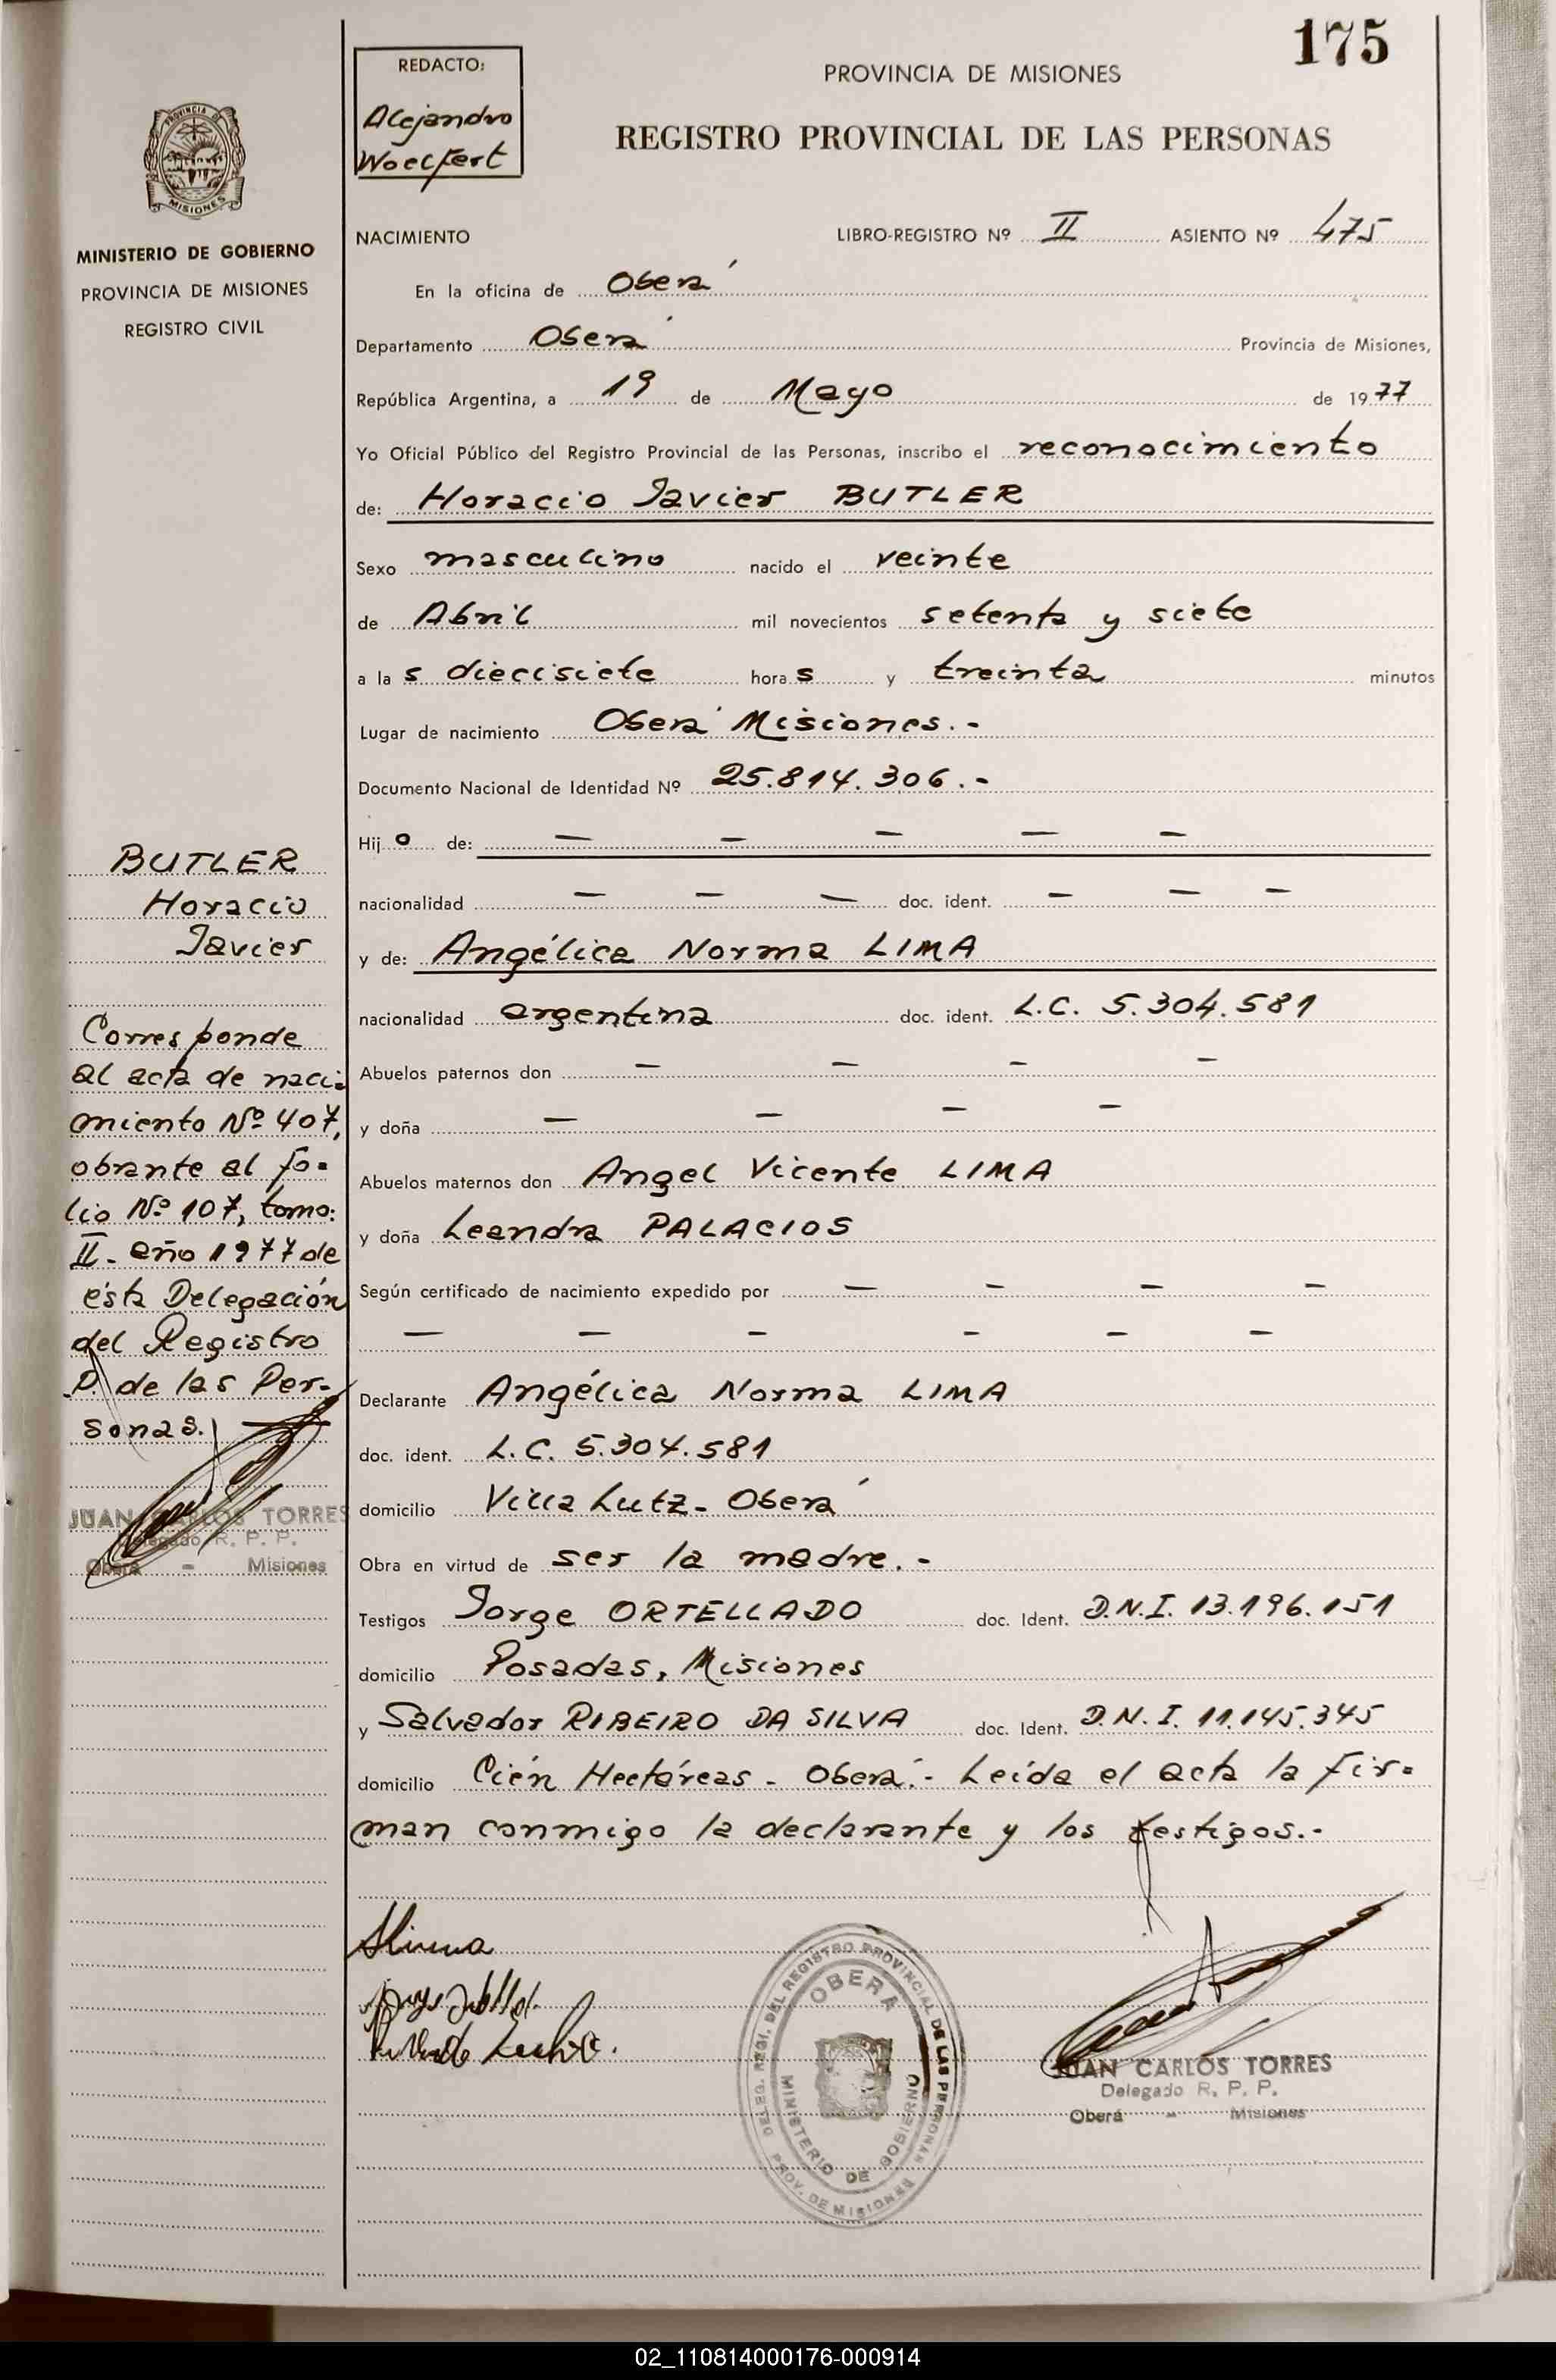 175
REDACTO:
Alejandro
Woelfert
PROVINCIA DE MISIONES
REGISTRO PROVINCIAL DE LAS PERSONAS
PROVINCIA DE
MISIONES
MINISTERIO DE GOBIERNO
PROVINCIA DE MISIONES
REGISTRO CIVIL
NACIMIENTO LIBRO-REGISTRO Nº II ASIENTO Nº 475
En la oficina de Oberá
Departamento Oberá Provincia de Misiones,
República Argentina, a 19 de Mayo de 1977
Yo Oficial Público del Registro Provincial de las Personas, inscribo el reconocimiento
de: Horacio Javier BUTLER
Sexo masculino nacido el veinte
de Abril mil novecientos setenta y siete
a las diecisiete horas y treinta minutos
Lugar de nacimiento Oberá Misiones.-
Documento Nacional de Identidad Nº 25.814.306.-
Hijo de: — — — — —
nacionalidad — — — doc. ident. — — —
y de: Angélica Norma LIMA
nacionalidad argentina doc. ident. L.C. 5.304.581
Abuelos paternos don — — — —
y doña — — — —
Abuelos maternos don Angel Vicente LIMA
y doña Leandra PALACIOS
Según certificado de nacimiento expedido por — — — —
— — — — — —
Declarante Angélica Norma LIMA
doc. ident. L.C. 5.304.581
domicilio Villa Lutz - Oberá
Obra en virtud de ser la madre.-
Testigos Jorge ORTELLADO doc. Ident. D.N.I. 13.196.151
domicilio Posadas, Misiones
y Salvador RIBEIRO DA SILVA doc. Ident. D.N.I. 11.145.345
domicilio Cién Hectáreas - Oberá.- Leída el acta la fir-
man conmigo la declarante y los testigos.-
BUTLER
Horacio
Javier
Corresponde
al acta de naci-
miento Nº 407,
obrante al fo-
lio Nº 107, tomo:
II - año 1977 de
ésta Delegación
del Registro
P. de las Per-
sonas.
JUAN CARLOS TORRES
Delegado R. P. P.
Oberá - Misiones
DELEG. REGI. DEL REGISTRO PROVINCIAL DE LAS PERSONAS
OBERA
MINISTERIO DE GOBIERNO
PROV. DE MISIONES
JUAN CARLOS TORRES
Delegado R. P. P.
Oberá - Misiones
02_110814000176-000914